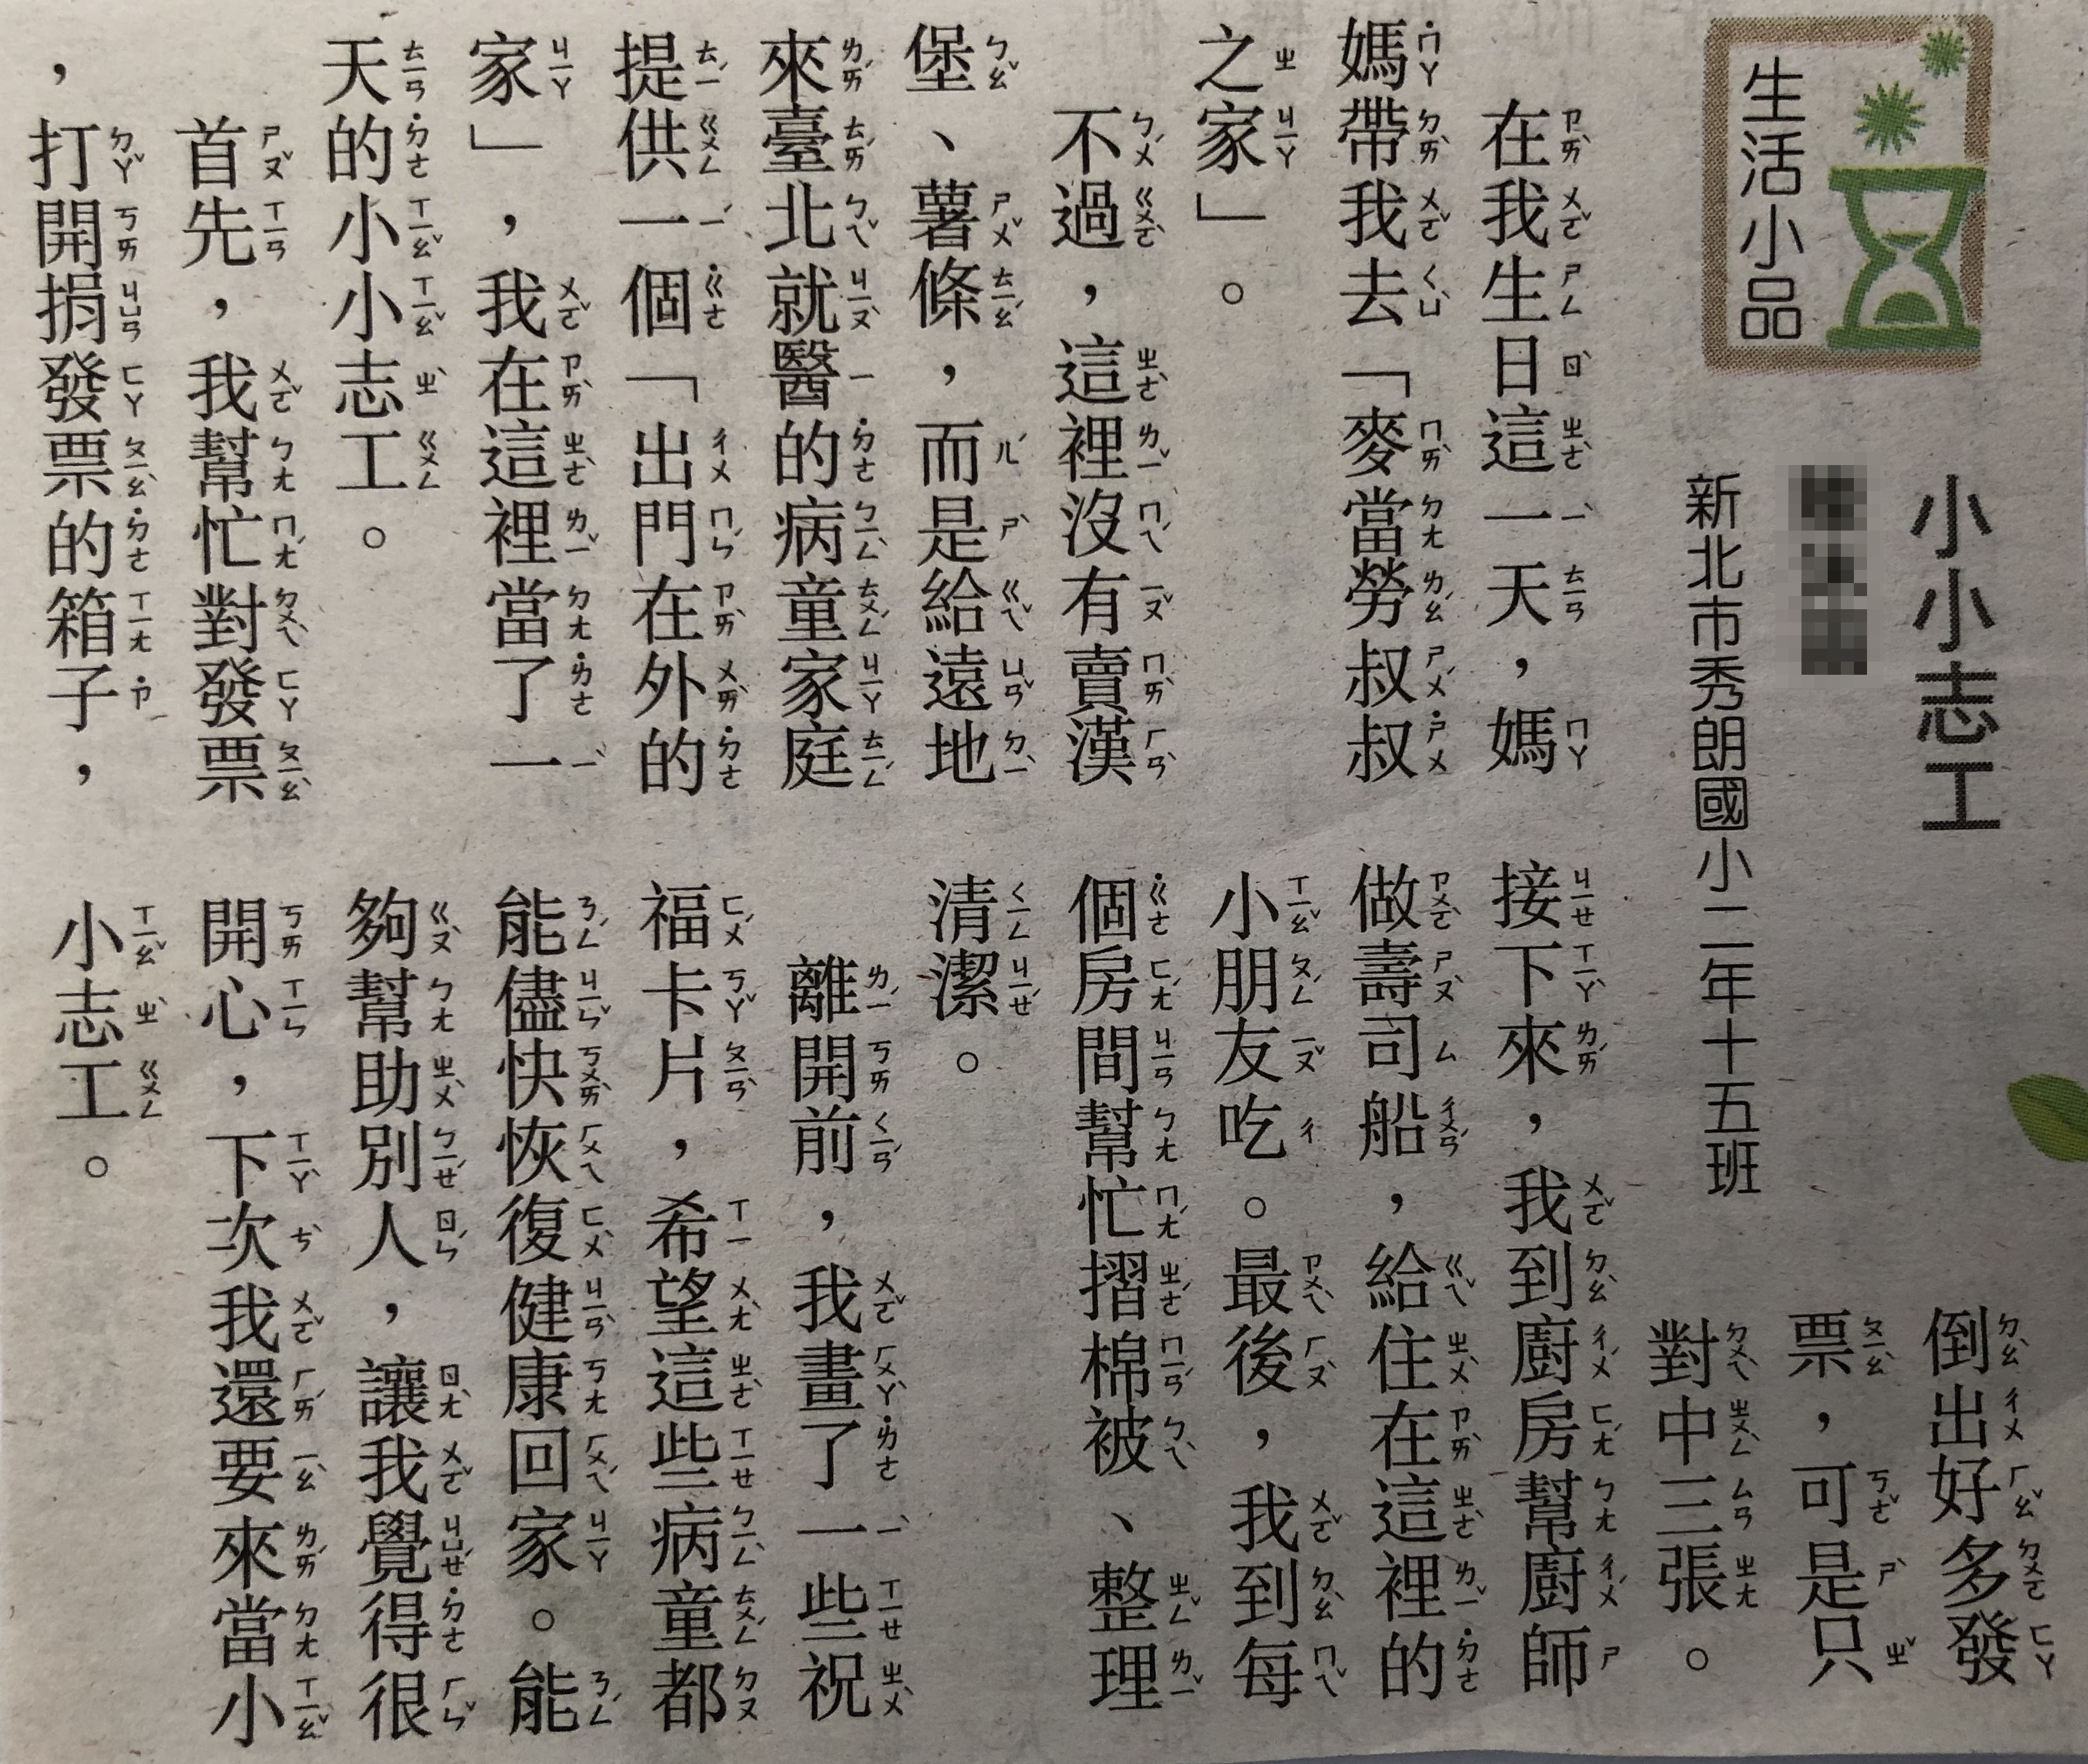 生活小品
小小志工
新北市秀朗國小二年十五班
在我生日這一天，媽
媽帶我去「麥當勞叔叔
之家」。
不過，這裡沒有賣漢
堡、薯條，而是給遠地
來臺北就醫的病童家庭
提供一個「出門在外的
家」，我在這裡當了一
天的小小志工。
首先，我幫忙對發票
，打開捐發票的箱子，
倒出好多發
票，可是只
對中三張。
接下來，我到廚房幫廚師
做壽司船，給住在這裡的
小朋友吃。最後，我到每
個房間幫忙摺棉被、整理
清潔。
離開前，我畫了一些祝
福卡片，希望這些病童都
能儘快恢復健康回家。能
夠幫助別人，讓我覺得很
開心，下次我還要來當小
小志工。